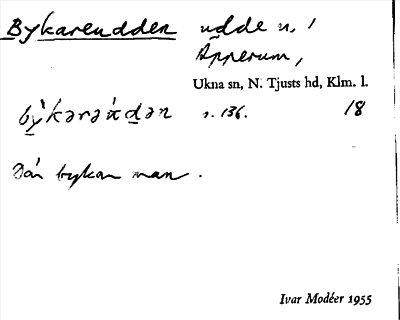 Bykareudden udde n. 1
Äpperum,
Ukna sn, N. Tjusts hd, Klm. l.
s. 136. 18
Där bykar man.
Ivar Modéer 1955